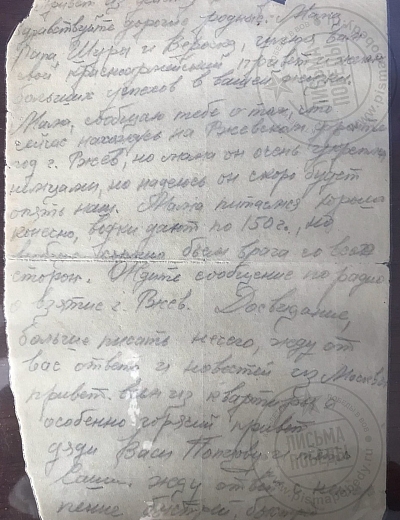 Привет из
здравствуйте дорогие родные. Мама
Папа, Шура и
свой красноармейский привет и желаю
больших успехов в вашей жизни.
Мама, сообщаю тебе о том, что
сейчас нахожусь на Ржевском фронте
под г. Ржев, но мама он очень укреплен
немцами, но надеюсь он скоро будет
опять нам. Мама питаемся хорошо
конечно, водки дают по 150 г., но
бьем врага со всех
сторон. Ждите сообщение по радио
о взятие г. Ржев. Досведание,
больше писать нечего, жду от
вас ответа и новостей из Москвы
привет всем из квартиры, а
особенно горячий привет
дяди Васи
жду ответ с
ПИСЬМА ПОБЕДЫ
ПИСЬМА ПОБЕДЫ